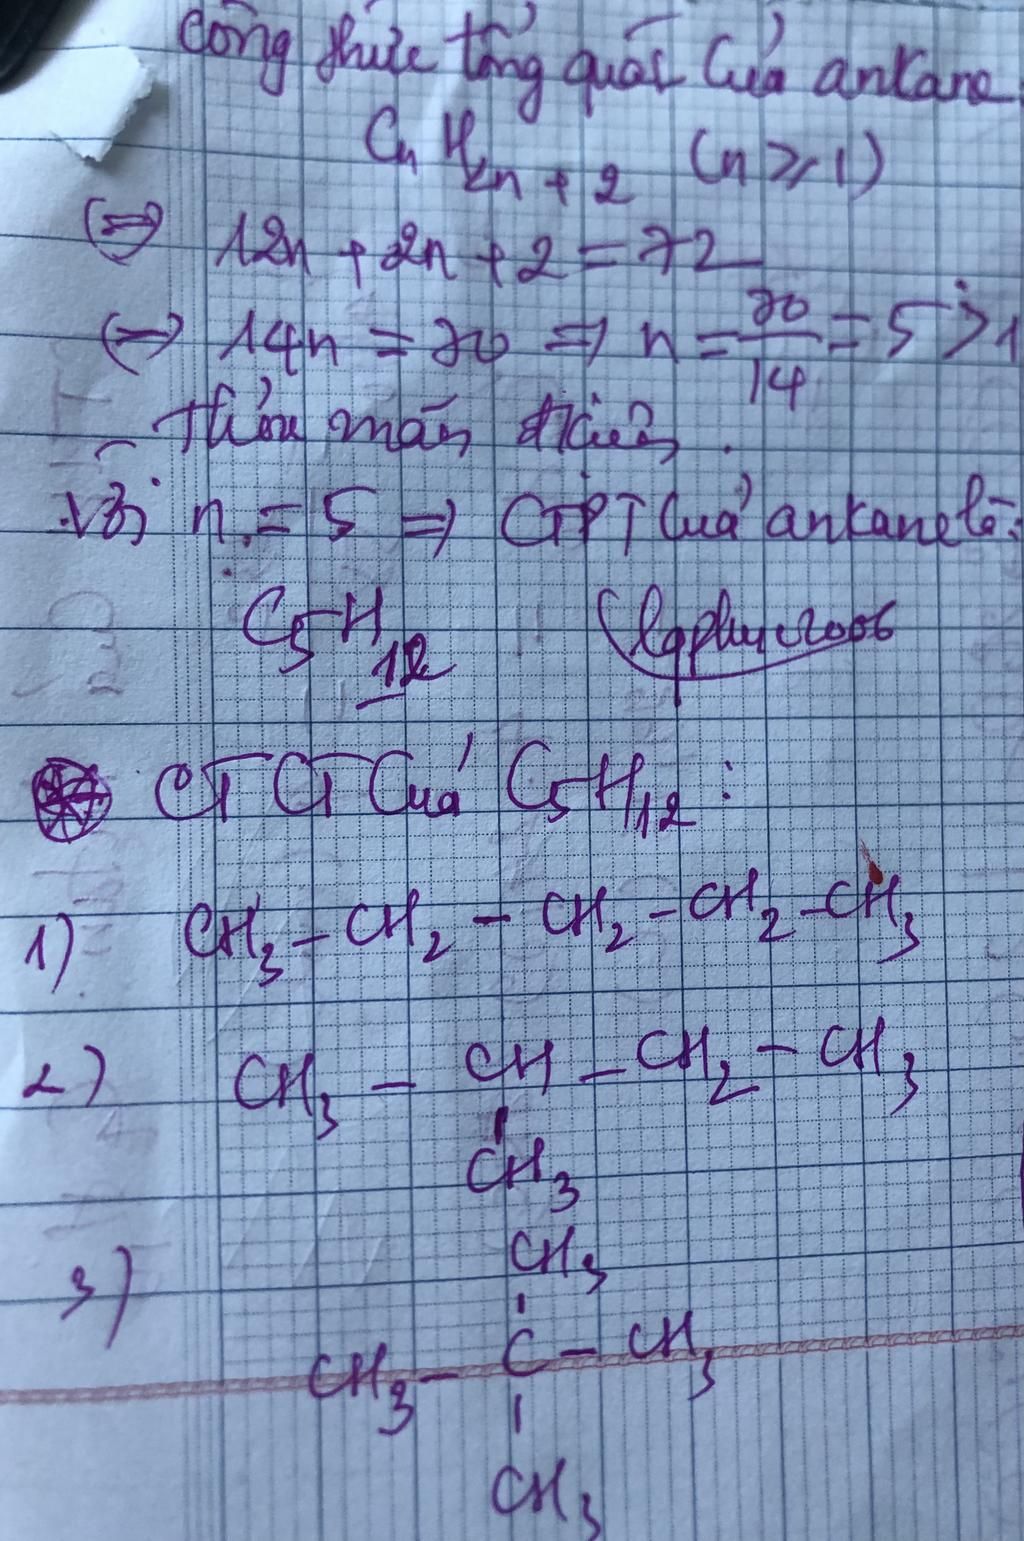 Công thức tổng quát của ankane
CnH2n+2 (n ≥ 1)
(=) 12n + 2n + 2 = 72
(=) 14n = 70 => n = 70/14 = 5 > 1
Thỏa mãn điều
Với n = 5 => CTPT của ankane là:
C5H12 lqphuc2006
CTCT của C5H12:
1) CH3 - CH2 - CH2 - CH2 - CH3
2) CH3 - CH - CH2 - CH3
CH3
CH3
3)
CH3 - C - CH3
CH3